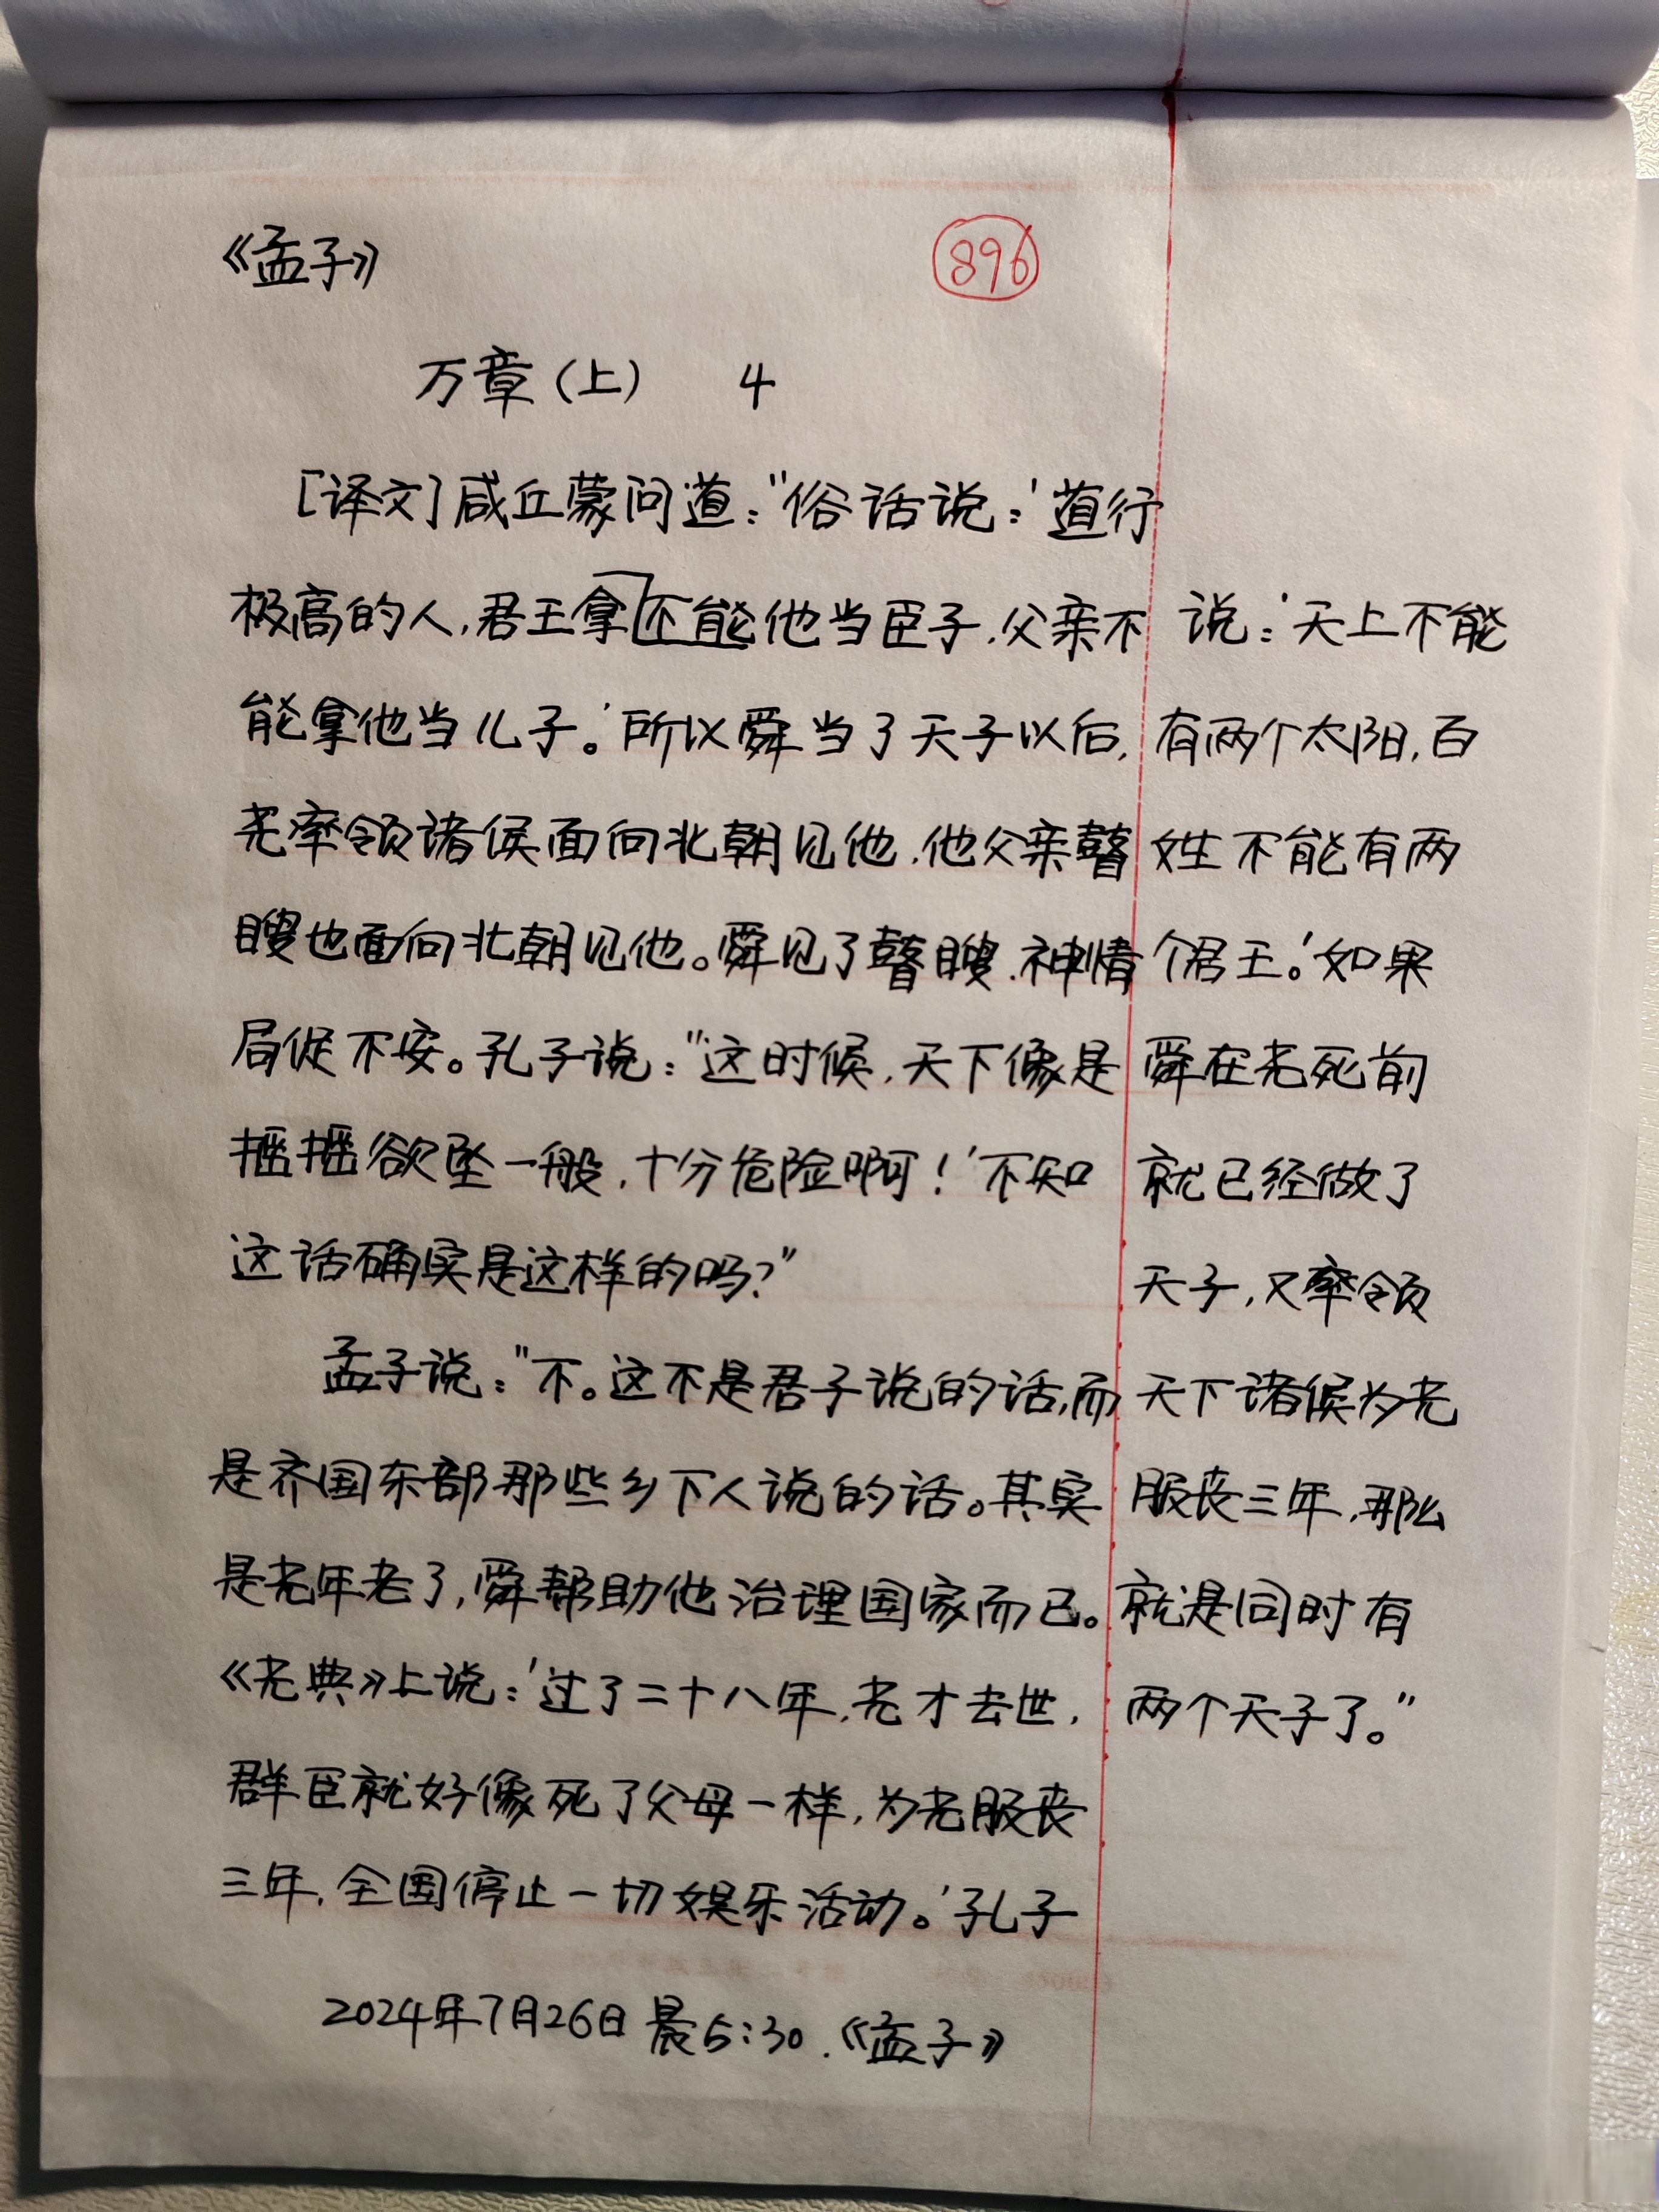 《孟子》
896
万章(上) 4
[译文]咸丘蒙问道:"俗话说:'道行
极高的人,君王拿不能他当臣子,父亲不
能拿他当儿子。'所以舜当了天子以后,
尧率领诸侯面向北朝见他,他父亲瞽
瞍也面向北朝见他。舜见了瞽瞍,神情
局促不安。孔子说:"这时候,天下像是
摇摇欲坠一般,十分危险啊!'不知
这话确实是这样的吗?"
孟子说:"不。这不是君子说的话,而
是齐国东部那些乡下人说的话。其实
是尧年老了,舜帮助他治理国家而已。
《尧典》上说:'过了二十八年,尧才去世,
群臣就好像死了父母一样,为尧服丧
三年,全国停止一切娱乐活动。'孔子
说:'天上不能
有两个太阳,百
姓不能有两
个君王。'如果
舜在尧死前
就已经做了
天子,又率领
天下诸侯为尧
服丧三年,那么
就是同时有
两个天子了。"
2024年7月26日晨5:30.《孟子》